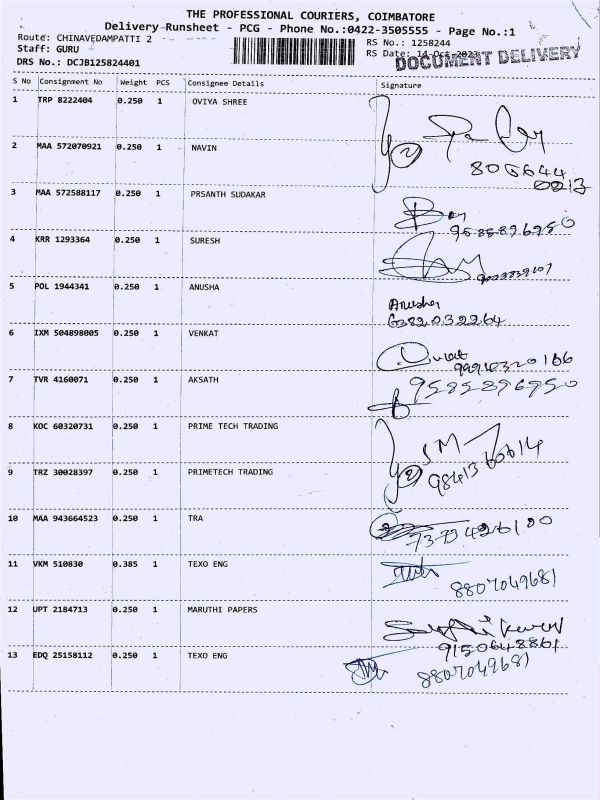 THE PROFESSIONAL COURIERS, COIMBATORE
Delivery Runsheet - PCG - Phone No.:0422-3505555 - Page No.:1
Route: CHINAVEDAMPATTI 2
RS No.: 1258244
Staff: GURU
RS Date: 14-Oct-2023
DOCUMENT DELIVERY
DRS No.: DCJB125824401
S No Consignment No Weight PCS Consignee Details Signature
1 TRP 8222404 0.250 1 OVIYA SHREE
2 MAA 572070921 0.250 1 NAVIN
2
806644
0213
3 MAA 572588117 0.250 1 PRSANTH SUDAKAR
9585896950
4 KRR 1293364 0.250 1 SURESH
5 POL 1944341 0.250 1 ANUSHA
Anusha
6382032264
6 IXM 504898005 0.250 1 VENKAT
7 TVR 4160071 0.250 1 AKSATH
9585896950
8 KOC 60320731 0.250 1 PRIME TECH TRADING
9 TRZ 30028397 0.250 1 PRIMETECH TRADING
2
10 MAA 943664523 0.250 1 TRA
11 VKM 510830 0.385 1 TEXO ENG
8807049681
12 UPT 2184713 0.250 1 MARUTHI PAPERS
9150648861
13 EDQ 25158112 0.250 1 TEXO ENG
8807049681